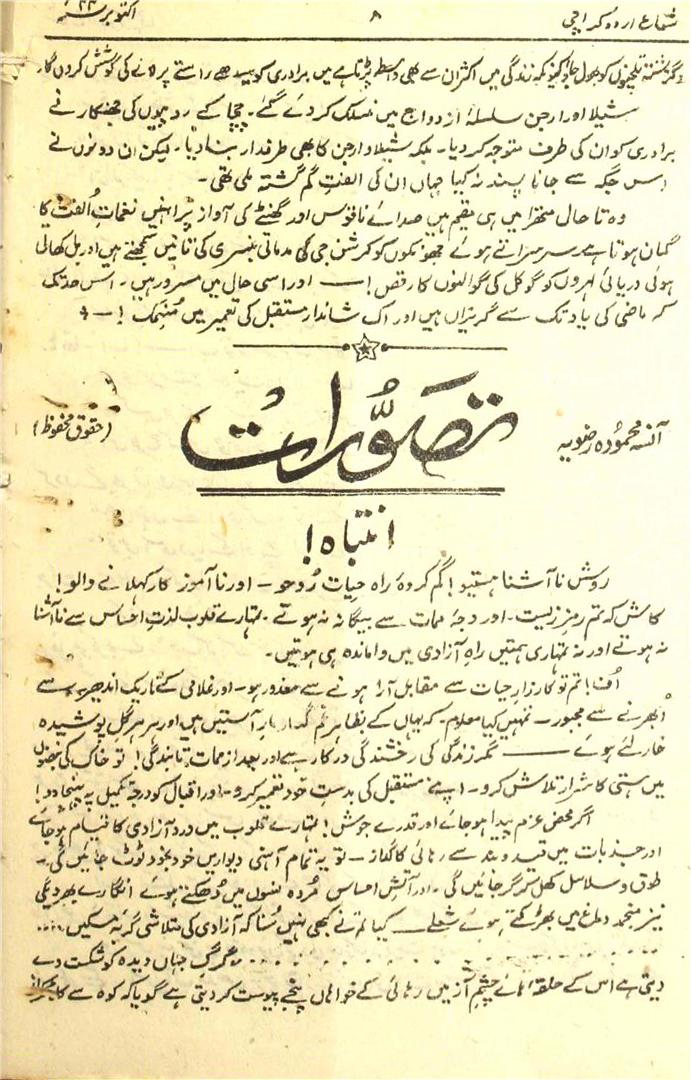 شعاع اردو کراچی ۸ اکتوبر ۴۴ء
گزشتہ تلخیوں کو بھول جاؤ کیونکہ زندگی میں اکثر ان سے بھی واسطہ پڑتا ہے میں برادری کو سیدھے راستے پر لانے کی کوشش کروں گا
شیلا اور ارجن سلسلۂ ازدواج میں منسلک کر دئے گئے۔ چچا کے روپیوں کی جھنکار نے
برادری کو ان کی طرف متوجہ کر دیا۔ بلکہ شیلا و ارجن کا بھی طرفدار بنا دیا۔ لیکن ان دونوں نے
اس جگہ سے جانا پسند نہ کیا جہاں ان کی الفتِ گم گشتہ ملی تھی۔
وہ تا حال متھرا میں ہی مقیم ہیں صدائے ناقوس اور گھنٹے کی آواز پر انہیں نغماتِ اُلفت کا
گمان ہوتا ہے سرسراتے ہوئے جھونکوں کو کرشن جی کی مدماتی بنسری کی تانیں سمجھتے ہیں اور بل کھاتی
ہوئی دریائی لہروں کو گوکل کی گوالنوں کا رقص! — اور اسی حال میں مسرور ہیں۔ اس حد تک
کہ ماضی کی یاد تک سے گریزاں ہیں اور اک شاندار مستقبل کی تعمیر میں مُنہمک! —
آنسہ محمودہ رضویہ
تصوّرات
(حقوق محفوظ)
انتباہ!
روش نا آشنا ہستیو! گم کردۂ راہ حیات رُوحو — اور نا آموز کار کہلانے والو!
کاش کہ تم رمزِ زیست۔ اور درجۂ ممات سے بیگانہ نہ ہوتے۔ تمہارے قلوب لذتِ احساس سے نا آشنا
نہ ہوتے اور نہ تمہاری ہمتیں راہِ آزادی میں واماندہ ہی ہوتیں۔
اُف! تم تو کارزارِ حیات سے مقابل آرا ہونے سے معذور ہو۔ اور غلامی کے تاریک اندھیرے سے
اُبھرنے سے مجبور — تمہیں کیا معلوم۔ کہ یہاں کے بظاہر غم گسار مارِ آستیں ہیں اور ہر ہر گل پوشیدہ
خار لئے ہوئے — مگر زندگی کی رخشندگی درکار ہے اور بعد از ممات تابندگی! تو خاک کی نبضوں
میں ہستی کا شرار تلاش کرو۔ اپنے مستقبل کی بدستِ خود تعمیر کرو۔ اور اقبال کو درجۂ تکمیل پہ پہنچا دو!
اگر محض عزم پیدا ہو جائے اور قدرے جوش! تمہارے قلوب میں دردِ آزادی کا قیام ہو جائے
اور جذبات میں قید و بند سے رہائی کا گداز — تو یہ تمام آہنی دیواریں خود بخود ٹوٹ جائیں گی۔
طوق و سلاسل کھل کر گر جائیں گی۔ اور آتشِ احساس مُردہ نسوں میں دُھکتے ہوئے انگارے بھر دیگی
نیز منجمد دماغ میں بھڑکتے ہوئے شعلے — کیا تم نے کبھی نہیں سُنا کہ آزادی کی متلاشی گربۂ مسکیں ....
.... گرگِ جہاں دیدہ کو شکست دے
دیتی ہے اس کے حلقہ ہائے چشمِ آز میں رہائی کے خواہاں پنجے پیوست کر دیتی ہے گویا کہ کوہ سے کاہ